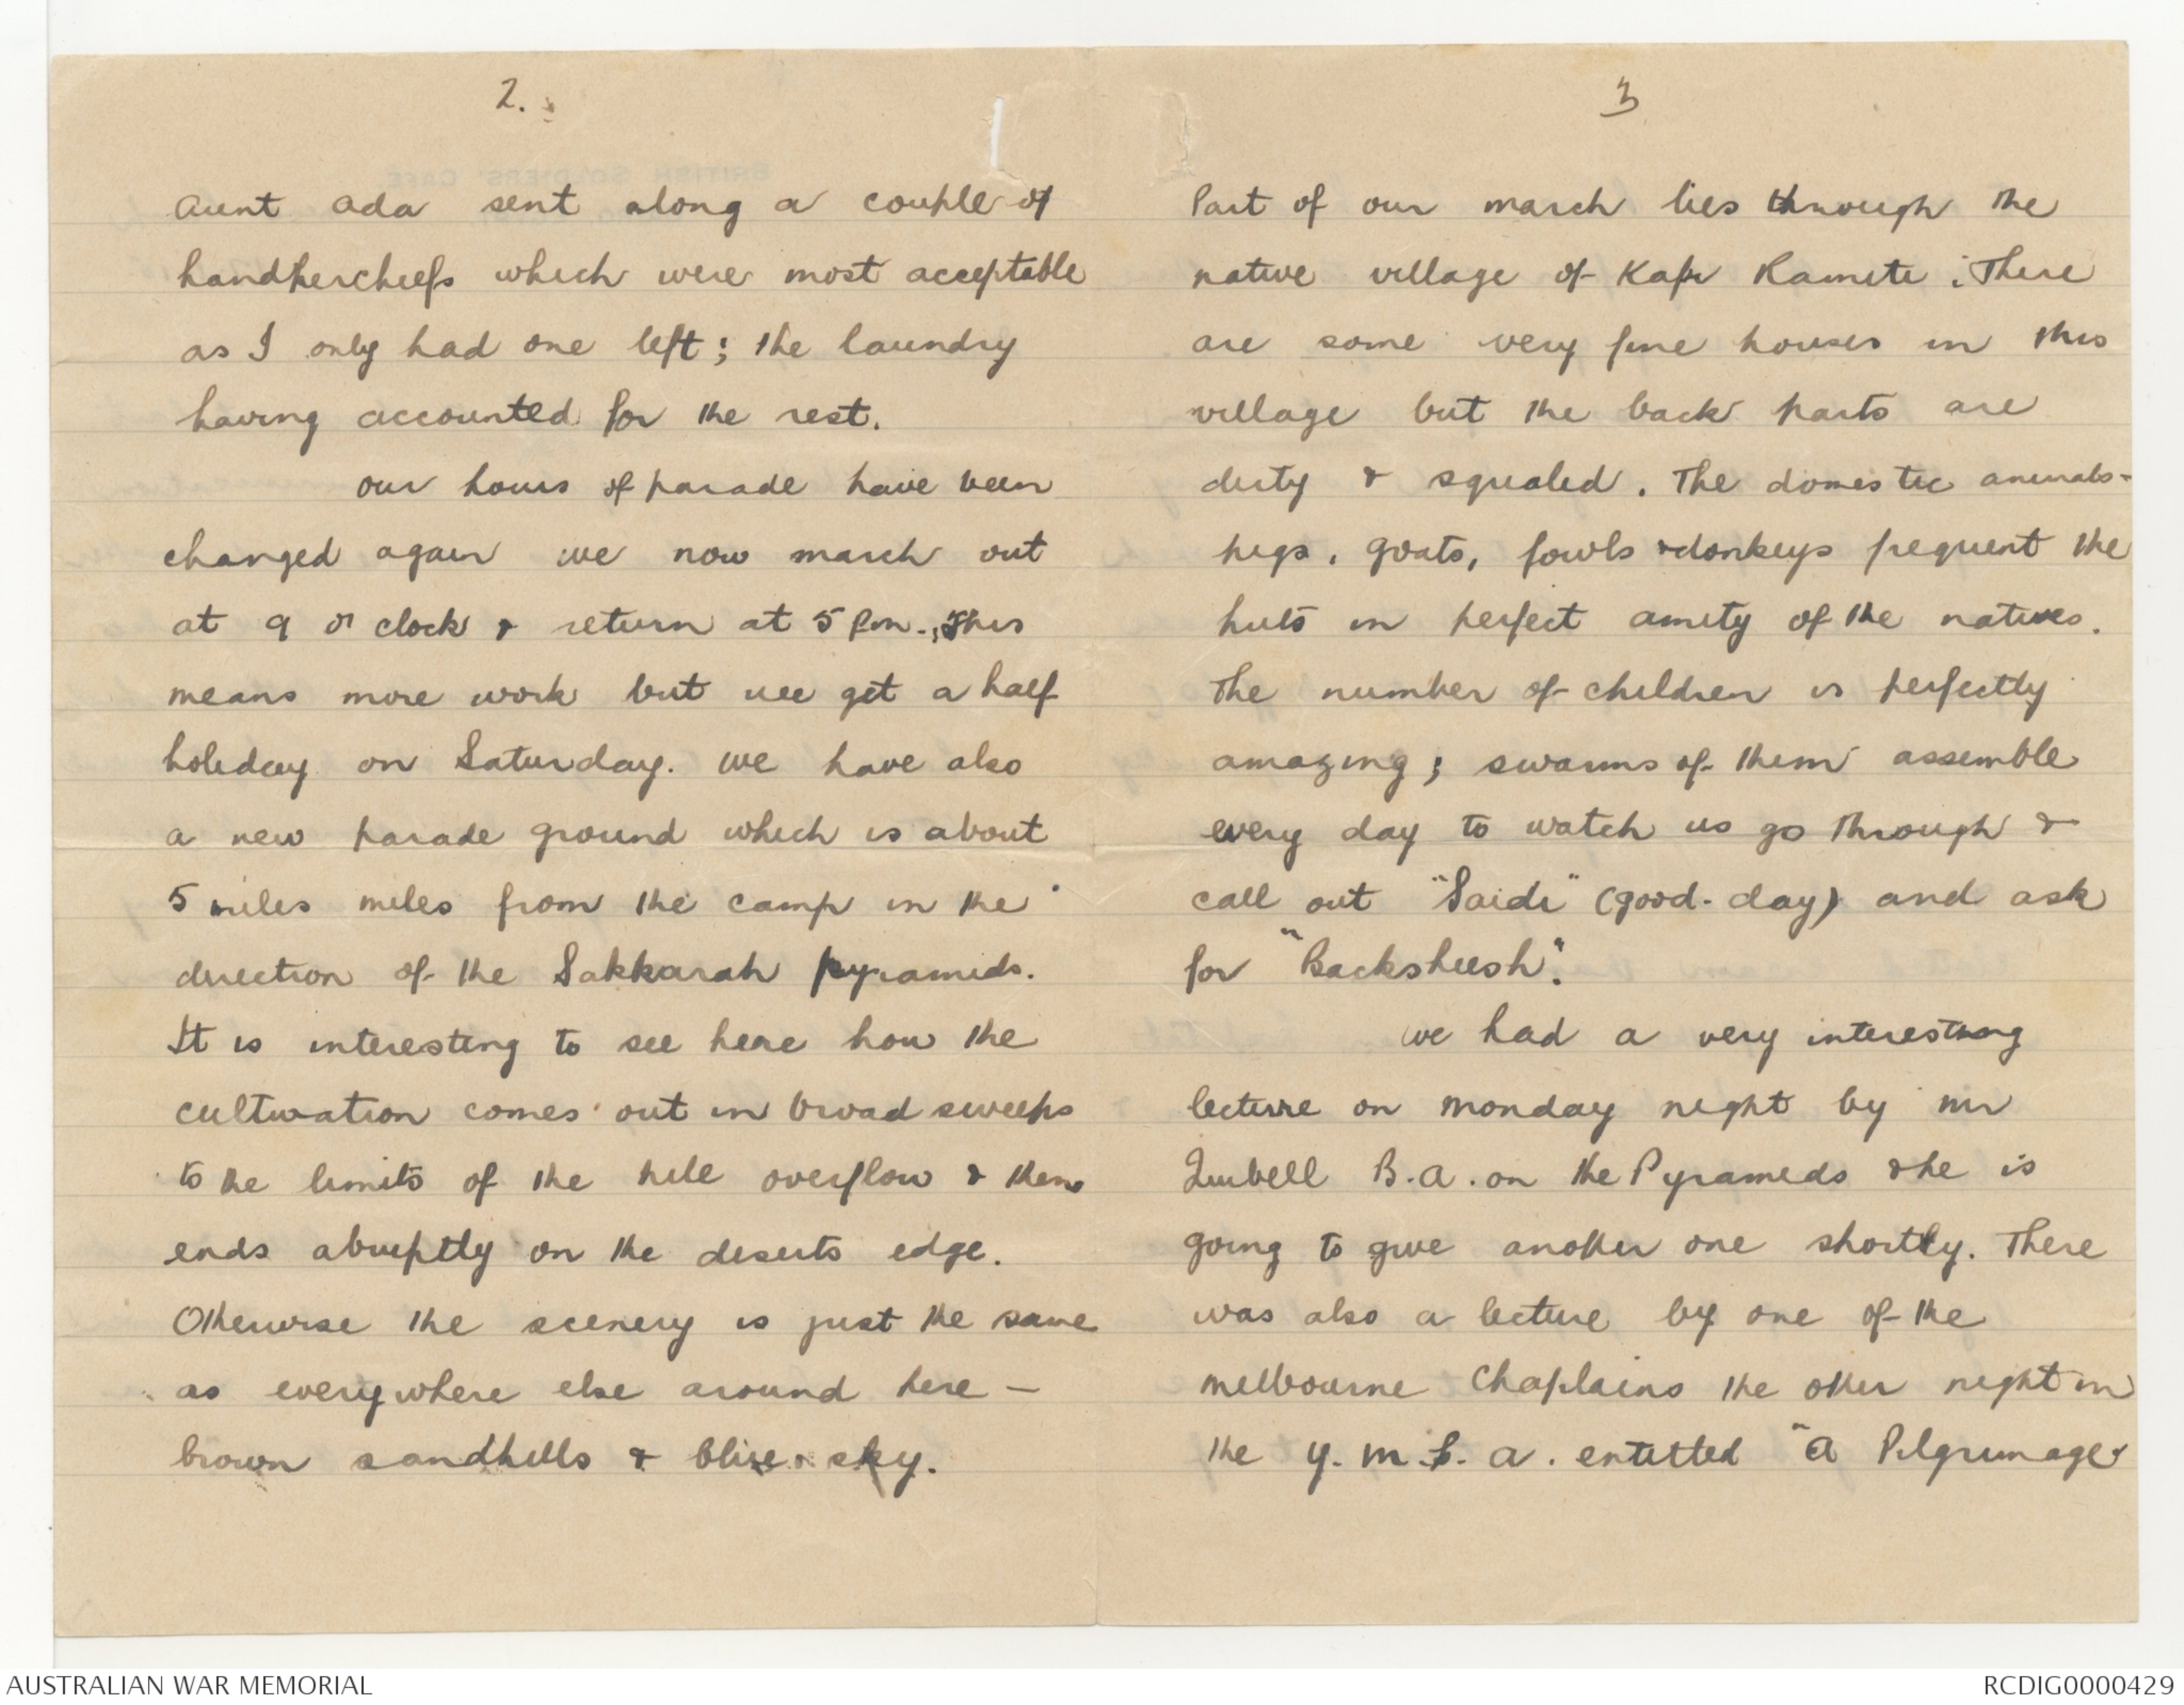 2.
Aunt Ada sent along a couple of
handkercheifs which were most acceptable
as I only had one left; the laundry
having accounted for the rest.
Our hours of parade have been
changed again we now march out
at 9 o'clock & return at 5 pm.; This
means more work but we get a half
holiday on Saturday. We have also
a new parade ground which is about
5 miles miles from the camp in the
direction of the Sakkarah pyramids.
It is interesting to see here how the
cultivation comes out in broad sweeps
to the limits of the nile overflow & then
ends abruptly on the deserts edge.
Otherwise the scenery is just the same
as everywhere else around here –
brown sandhills & blue sky.
3
Part of our march lies through the
native village of Kafr. There
are some very fine houses in this
village but the back parts are
dirty & squalid. The domestic animals-
pigs, goats, fowls & donkeys frequent the
huts in perfect amity of the natives.
The number of children is perfectly
amazing; swarms of them assemble
every day to watch us go through &
call out "Saidi" (good-day) and ask
for "Backsheesh".
We had a very interesting
lecture on Monday night by Mr
B.A. on the Pyramids & he is
going to give another one shortly. There
was also a lecture by one of the
Melbourne Chaplains the other night in
the Y.M.C.A. entitled "A Pilgrimage
AUSTRALIAN WAR MEMORIAL
RCDIG0000429